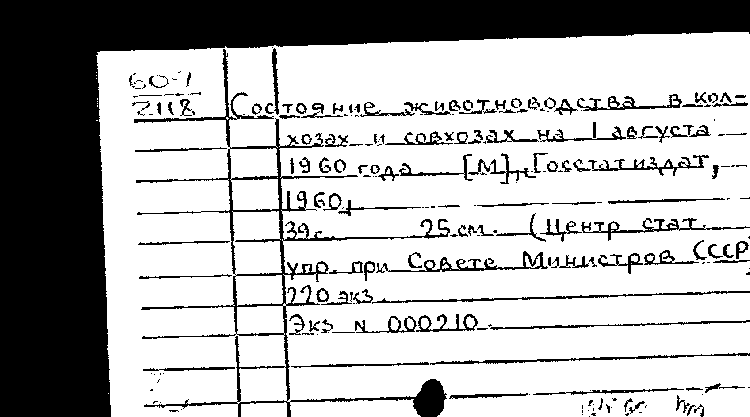 60-7
2118
Состояние животноводства в кол-
хозах и совхозах на 1 августа
1960 года [М], "Госстатиздат,
1960,
39 с. 25 см. (Центр стат.
упр. при Совете Министров СССР
220 экз.
Экз N 000210.